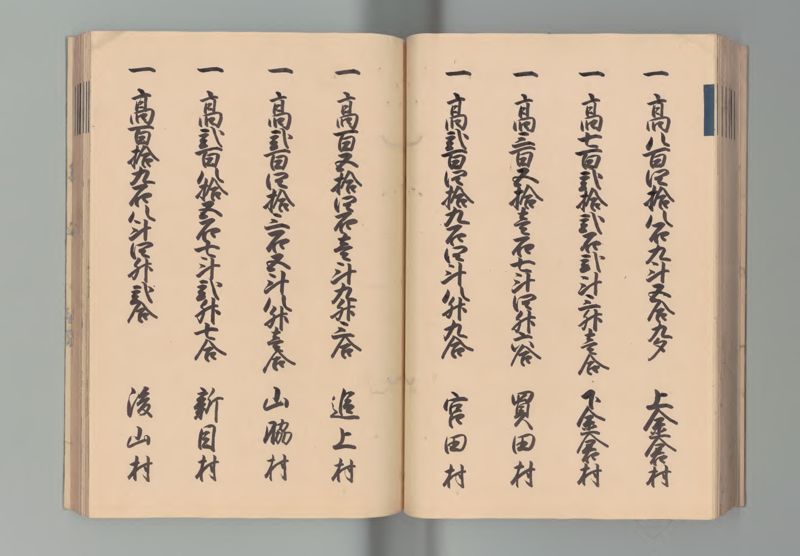 一 高八百四拾八石九斗五合九夕 上金倉村
一 高七百弐拾弐石弐斗三升壱合 下金倉村
一 高三百五拾壱石七斗四升六合 買田村
一 高弐百四拾九石四斗八升九合 宮田村
一 高百五拾四石壱斗九升三合 追上村
一 高弐百四拾三石五斗八升壱合 山脇村
一 高弐百八拾五石七斗弐升七合 新目村
一 高百拾九石八斗四升弐合 後山村